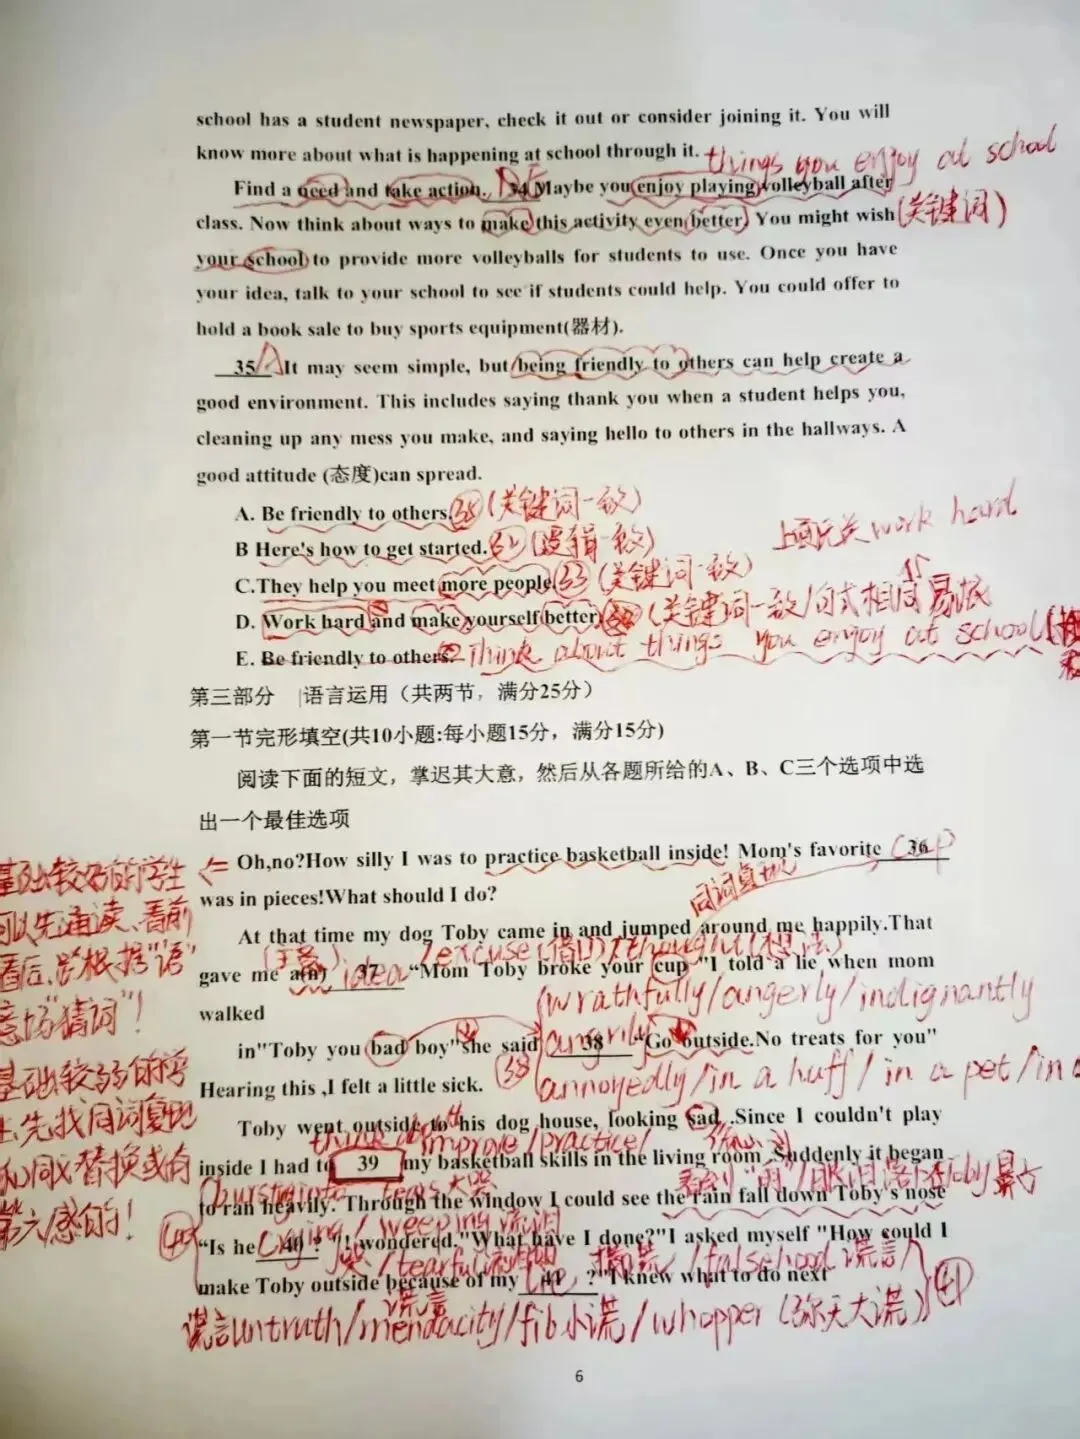 school has a student newspaper, check it out or consider joining it. You will
know more about what is happening at school through it. things you enjoy at school
Find a need and take action. 34 Maybe you enjoy playing volleyball after
class. Now think about ways to make this activity even better. You might wish (关键词)
your school to provide more volleyballs for students to use. Once you have
your idea, talk to your school to see if students could help. You could offer to
hold a book sale to buy sports equipment(器材).
35 A It may seem simple, but being friendly to others can help create a
good environment. This includes saying thank you when a student helps you,
cleaning up any mess you make, and saying hello to others in the hallways. A
good attitude (态度)can spread.
A. Be friendly to others. 35 (关键词一致)
B Here's how to get started. 31 (逻辑一致)
上项无关work hard
C.They help you meet more people. 33 (关键词一致)
D. Work hard and make yourself better. (关键词一致/句式相同 易混
E. Be friendly to others. Think about things you enjoy at school
第三部分 语言运用（共两节，满分25分）
第一节完形填空(共10小题:每小题15分，满分15分)
阅读下面的短文，掌迟其大意，然后从各题所给的A、B、C三个选项中选
出一个最佳选项
基础较好的学生
可以先通读、看前
看后,并根据"语
意场"猜词"！
Oh,no?How silly I was to practice basketball inside! Mom's favorite 36 (cup)
was in pieces!What should I do?
同词复现
At that time my dog Toby came in and jumped around me happily.That
(主意) idea /excuse(借口)/thought(想法)
gave me a(n) 37 "Mom Toby broke your cup "I told a lie when mom
walked
(wrathfully/angerly/indignantly
in"Toby you bad boy"she said 38 angrily "Go outside.No treats for you"
基础较弱的学
生先找同词复现
和同义替换或的
第六感的！
Hearing this ,I felt a little sick.
38 annoyedly/in a huff/in a pet/in a
Toby went outside to his dog house, looking sad .Since I couldn't play
think about improve/practice/
inside I had to 39 my basketball skills in the living room .Suddenly it began
burst into tears大哭
to ran heavily. Through the window I could see the rain fall down Toby's nose
crying/weeping流泪
"Is he 40 ? "I wondered."What have I done?"I asked myself "How could I
哭/tearful lie 撒谎/falsehood 谎言
make Toby outside because of my 41 ?"I knew what to do next
谎言untruth/mendacity谎言/fib小谎/whopper(弥天大谎) 41
6